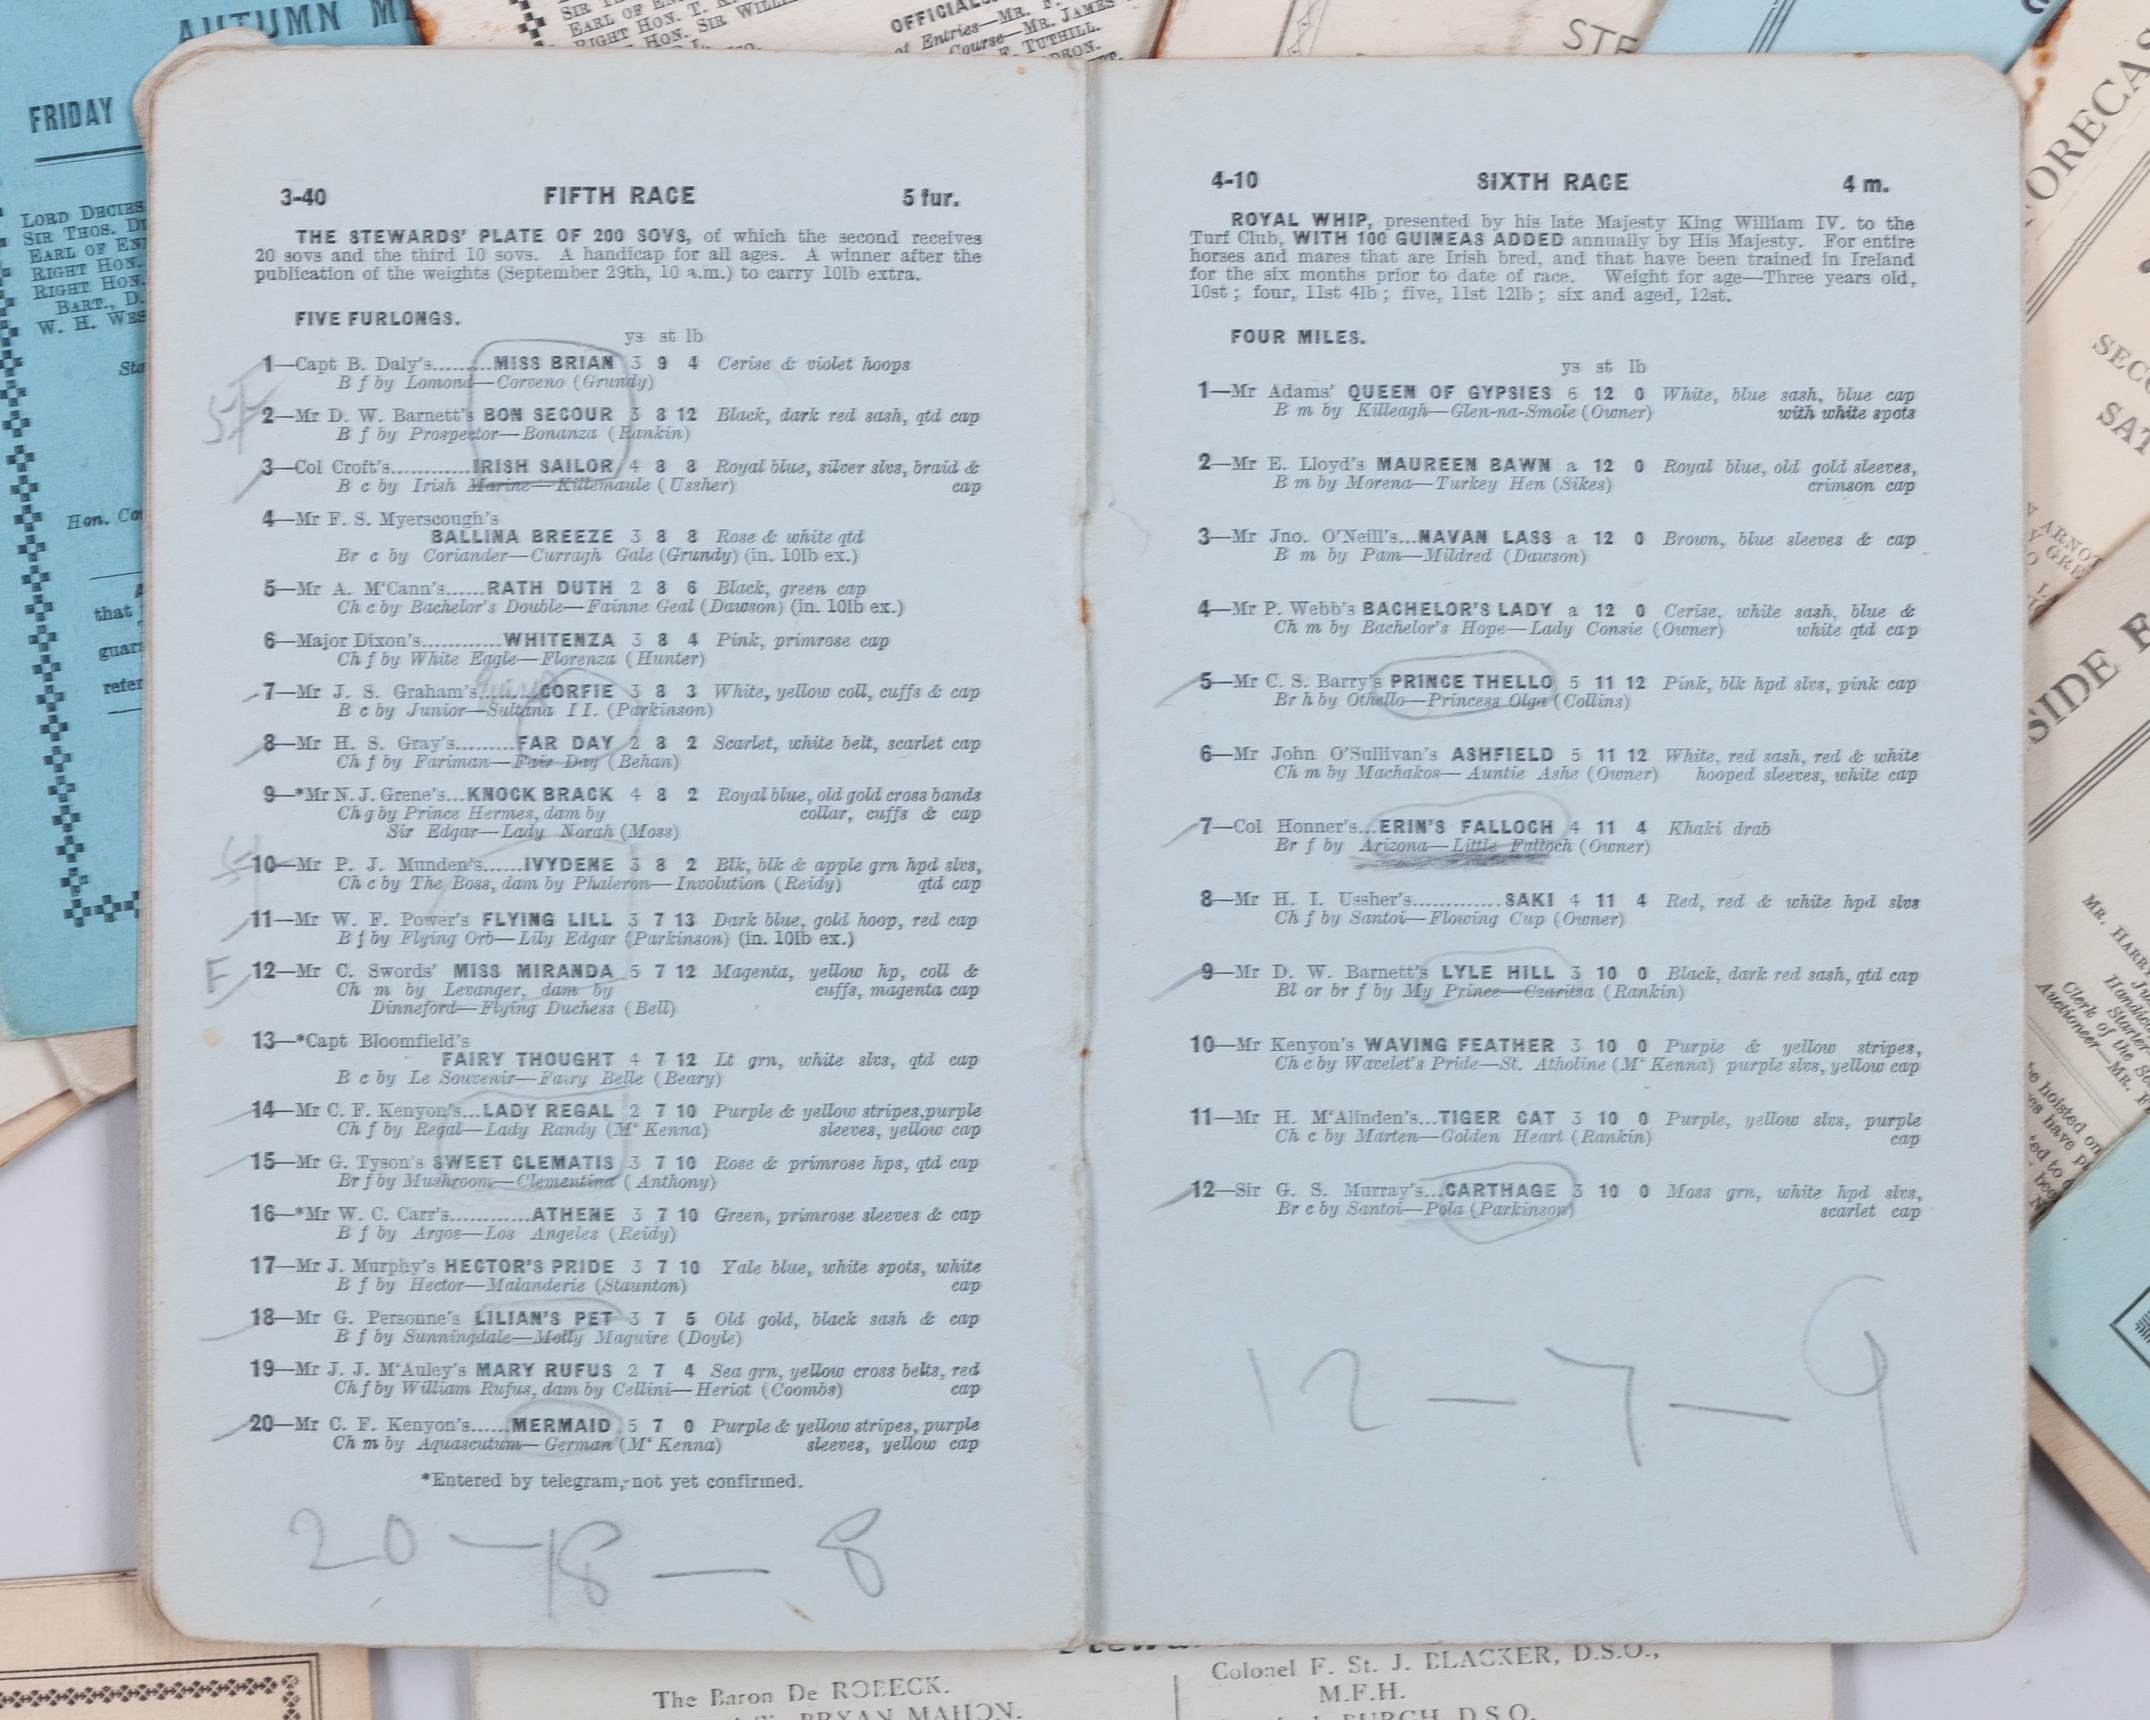 AUTUMN
FRIDAY
LORD DECIES
SIR THOS.
EARL OF
RIGHT HON.
RIGHT HON.
BART., D.
W. H.
Hon.
that
refer
EARL OF
RIGHT HON. T.
HON. SIR
OFFICIALS
of Entries—MR. F.
Course—MR. JAMES
F. TUTHILL.
3-40 FIFTH RACE 5 fur.
THE STEWARDS' PLATE OF 200 SOVS, of which the second receives
20 sovs and the third 10 sovs. A handicap for all ages. A winner after the
publication of the weights (September 29th, 10 a.m.) to carry 10lb extra.
FIVE FURLONGS.
ys st lb
1—Capt B. Daly's.........MISS BRIAN 3 9 4 Cerise & violet hoops
B f by Lomond—Corveno (Grundy)
2—Mr D. W. Barnett's BON SECOUR 3 8 12 Black, dark red sash, qtd cap
B f by Prospector—Bonanza (Rankin)
3—Col Croft's............IRISH SAILOR 4 8 8 Royal blue, silver slvs, braid &
B c by Irish Marine—Killemaule (Ussher) cap
4—Mr F. S. Myerscough's
BALLINA BREEZE 3 8 8 Rose & white qtd
Br c by Coriander—Curragh Gale (Grundy) (in. 10lb ex.)
5—Mr A. M'Cann's......RATH DUTH 2 8 6 Black, green cap
Ch c by Bachelor's Double—Fainne Geal (Dawson) (in. 10lb ex.)
6—Major Dixon's............WHITENZA 3 8 4 Pink, primrose cap
Ch f by White Eagle—Florenza (Hunter)
7—Mr J. S. Graham's.........CORFIE 3 8 3 White, yellow coll, cuffs & cap
B c by Junior—Sultana II. (Parkinson)
8—Mr H. S. Gray's..........FAR DAY 2 8 2 Scarlet, white belt, scarlet cap
Ch f by Fariman—Fair Day (Behan)
9—*Mr N. J. Grene's...KNOCK BRACK 4 8 2 Royal blue, old gold cross bands
Ch g by Prince Hermes, dam by collar, cuffs & cap
Sir Edgar—Lady Norah (Moss)
10—Mr P. J. Munden's......IVYDENE 3 8 2 Blk, blk & apple grn hpd slvs,
Ch c by The Boss, dam by Phaleron—Involution (Reidy) qtd cap
11—Mr W. F. Power's FLYING LILL 3 7 13 Dark blue, gold hoop, red cap
B f by Flying Orb—Lily Edgar (Parkinson) (in. 10lb ex.)
F 12—Mr C. Swords' MISS MIRANDA 5 7 12 Magenta, yellow hp, coll &
Ch m by Levanger, dam by cuffs, magenta cap
Dinneford—Flying Duchess (Bell)
13—*Capt Bloomfield's
FAIRY THOUGHT 4 7 12 Lt grn, white slvs, qtd cap
B c by Le Souvenir—Fairy Belle (Beary)
14—Mr C. F. Kenyon's...LADY REGAL 2 7 10 Purple & yellow stripes, purple
Ch f by Regal—Lady Randy (M'Kenna) sleeves, yellow cap
15—Mr G. Tyson's SWEET CLEMATIS 3 7 10 Rose & primrose hps, qtd cap
Br f by Mushroom—Clementina (Anthony)
16—*Mr W. C. Carr's............ATHENE 3 7 10 Green, primrose sleeves & cap
B f by Argos—Los Angeles (Reidy)
17—Mr J. Murphy's HECTOR'S PRIDE 3 7 10 Yale blue, white spots, white
B f by Hector—Malanderie (Staunton) cap
18—Mr G. Personne's LILIAN'S PET 3 7 5 Old gold, black sash & cap
B f by Sunningdale—Molly Maguire (Doyle)
19—Mr J. J. M'Auley's MARY RUFUS 2 7 4 Sea grn, yellow cross belts, red
Ch f by William Rufus, dam by Cellini—Heriot (Coombs) cap
20—Mr C. F. Kenyon's......MERMAID 5 7 0 Purple & yellow stripes, purple
Ch m by Aquascutum—German (M'Kenna) sleeves, yellow cap
*Entered by telegram, not yet confirmed.
20 — 18 — 8
4-10 SIXTH RACE 4 m.
ROYAL WHIP, presented by his late Majesty King William IV. to the
Turf Club, WITH 100 GUINEAS ADDED annually by His Majesty. For entire
horses and mares that are Irish bred, and that have been trained in Ireland
for the six months prior to date of race. Weight for age—Three years old,
10st; four, 11st 4lb; five, 11st 12lb; six and aged, 12st.
FOUR MILES.
ys st lb
1—Mr Adams' QUEEN OF GYPSIES 6 12 0 White, blue sash, blue cap
B m by Killeagh—Glen-na-Smole (Owner) with white spots
2—Mr E. Lloyd's MAUREEN BAWN a 12 0 Royal blue, old gold sleeves,
B m by Morena—Turkey Hen (Sikes) crimson cap
3—Mr Jno. O'Neill's...NAVAN LASS a 12 0 Brown, blue sleeves & cap
B m by Pam—Mildred (Dawson)
4—Mr P. Webb's BACHELOR'S LADY a 12 0 Cerise, white sash, blue &
Ch m by Bachelor's Hope—Lady Consie (Owner) white qtd cap
5—Mr C. S. Barry's PRINCE THELLO 5 11 12 Pink, blk hpd slvs, pink cap
Br h by Othello—Princess Olga (Collins)
6—Mr John O'Sullivan's ASHFIELD 5 11 12 White, red sash, red & white
Ch m by Machakos—Auntie Ashe (Owner) hooped sleeves, white cap
7—Col Honner's...ERIN'S FALLOCH 4 11 4 Khaki drab
Br f by Arizona—Little Falloch (Owner)
8—Mr H. I. Ussher's..............SAKI 4 11 4 Red, red & white hpd slvs
Ch f by Santoi—Flowing Cup (Owner)
9—Mr D. W. Barnett's LYLE HILL 3 10 0 Black, dark red sash, qtd cap
Bl or br f by My Prince—Czaritsa (Rankin)
10—Mr Kenyon's WAVING FEATHER 3 10 0 Purple & yellow stripes,
Ch c by Wavelet's Pride—St. Atholine (M'Kenna) purple slvs, yellow cap
11—Mr H. M'Alinden's...TIGER CAT 3 10 0 Purple, yellow slvs, purple
Ch c by Marten—Golden Heart (Rankin) cap
12—Sir G. S. Murray's...CARTHAGE 3 10 0 Moss grn, white hpd slvs,
Br c by Santoi—Pola (Parkinson) scarlet cap
12 — 7 — 9
SIDE
MR. HARRY
Clerk of the
Auctioneer—MR.
hoisted on
The Baron De ROBECK.
BRYAN MAHON.
Colonel F. St. J. BLACKER, D.S.O.,
M.F.H.
BURCH, D.S.O.